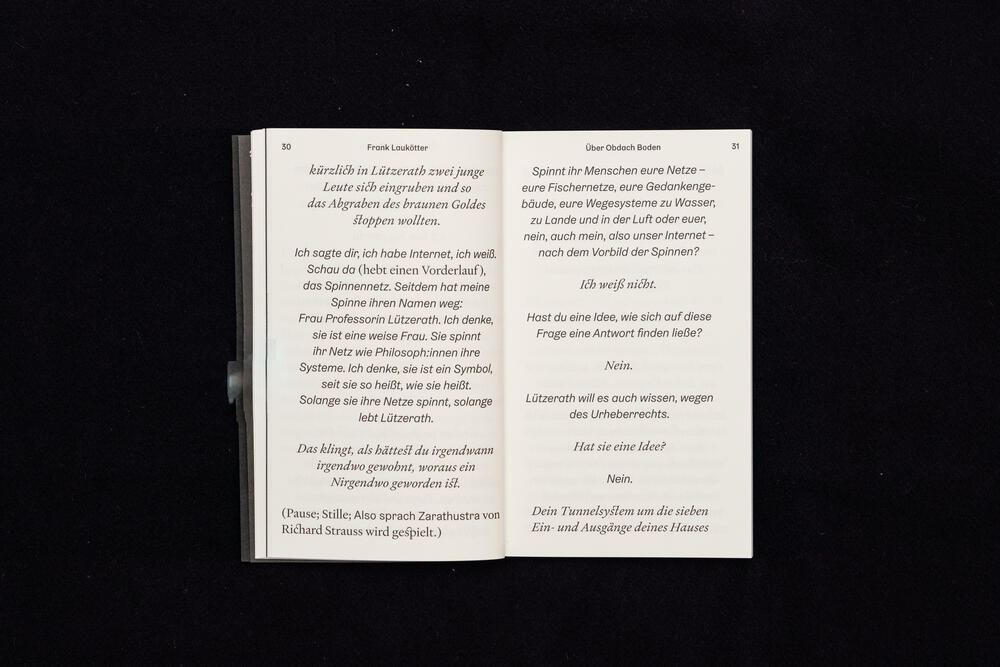 30
Frank Laukötter
kürzlich in Lützerath zwei junge
Leute sich eingruben und so
das Abgraben des braunen Goldes
stoppen wollten.
Ich sagte dir, ich habe Internet, ich weiß.
Schau da (hebt einen Vorderlauf),
das Spinnennetz. Seitdem hat meine
Spinne ihren Namen weg:
Frau Professorin Lützerath. Ich denke,
sie ist eine weise Frau. Sie spinnt
ihr Netz wie Philosoph:innen ihre
Systeme. Ich denke, sie ist ein Symbol,
seit sie so heißt, wie sie heißt.
Solange sie ihre Netze spinnt, solange
lebt Lützerath.
Das klingt, als hättest du irgendwann
irgendwo gewohnt, woraus ein
Nirgendwo geworden ist.
(Pause; Stille; Also sprach Zarathustra von
Richard Strauss wird gespielt.)
Über Obdach Boden
31
Spinnt ihr Menschen eure Netze –
eure Fischernetze, eure Gedankenge-
bäude, eure Wegesysteme zu Wasser,
zu Lande und in der Luft oder euer,
nein, auch mein, also unser Internet –
nach dem Vorbild der Spinnen?
Ich weiß nicht.
Hast du eine Idee, wie sich auf diese
Frage eine Antwort finden ließe?
Nein.
Lützerath will es auch wissen, wegen
des Urheberrechts.
Hat sie eine Idee?
Nein.
Dein Tunnelsystem um die sieben
Ein- und Ausgänge deines Hauses